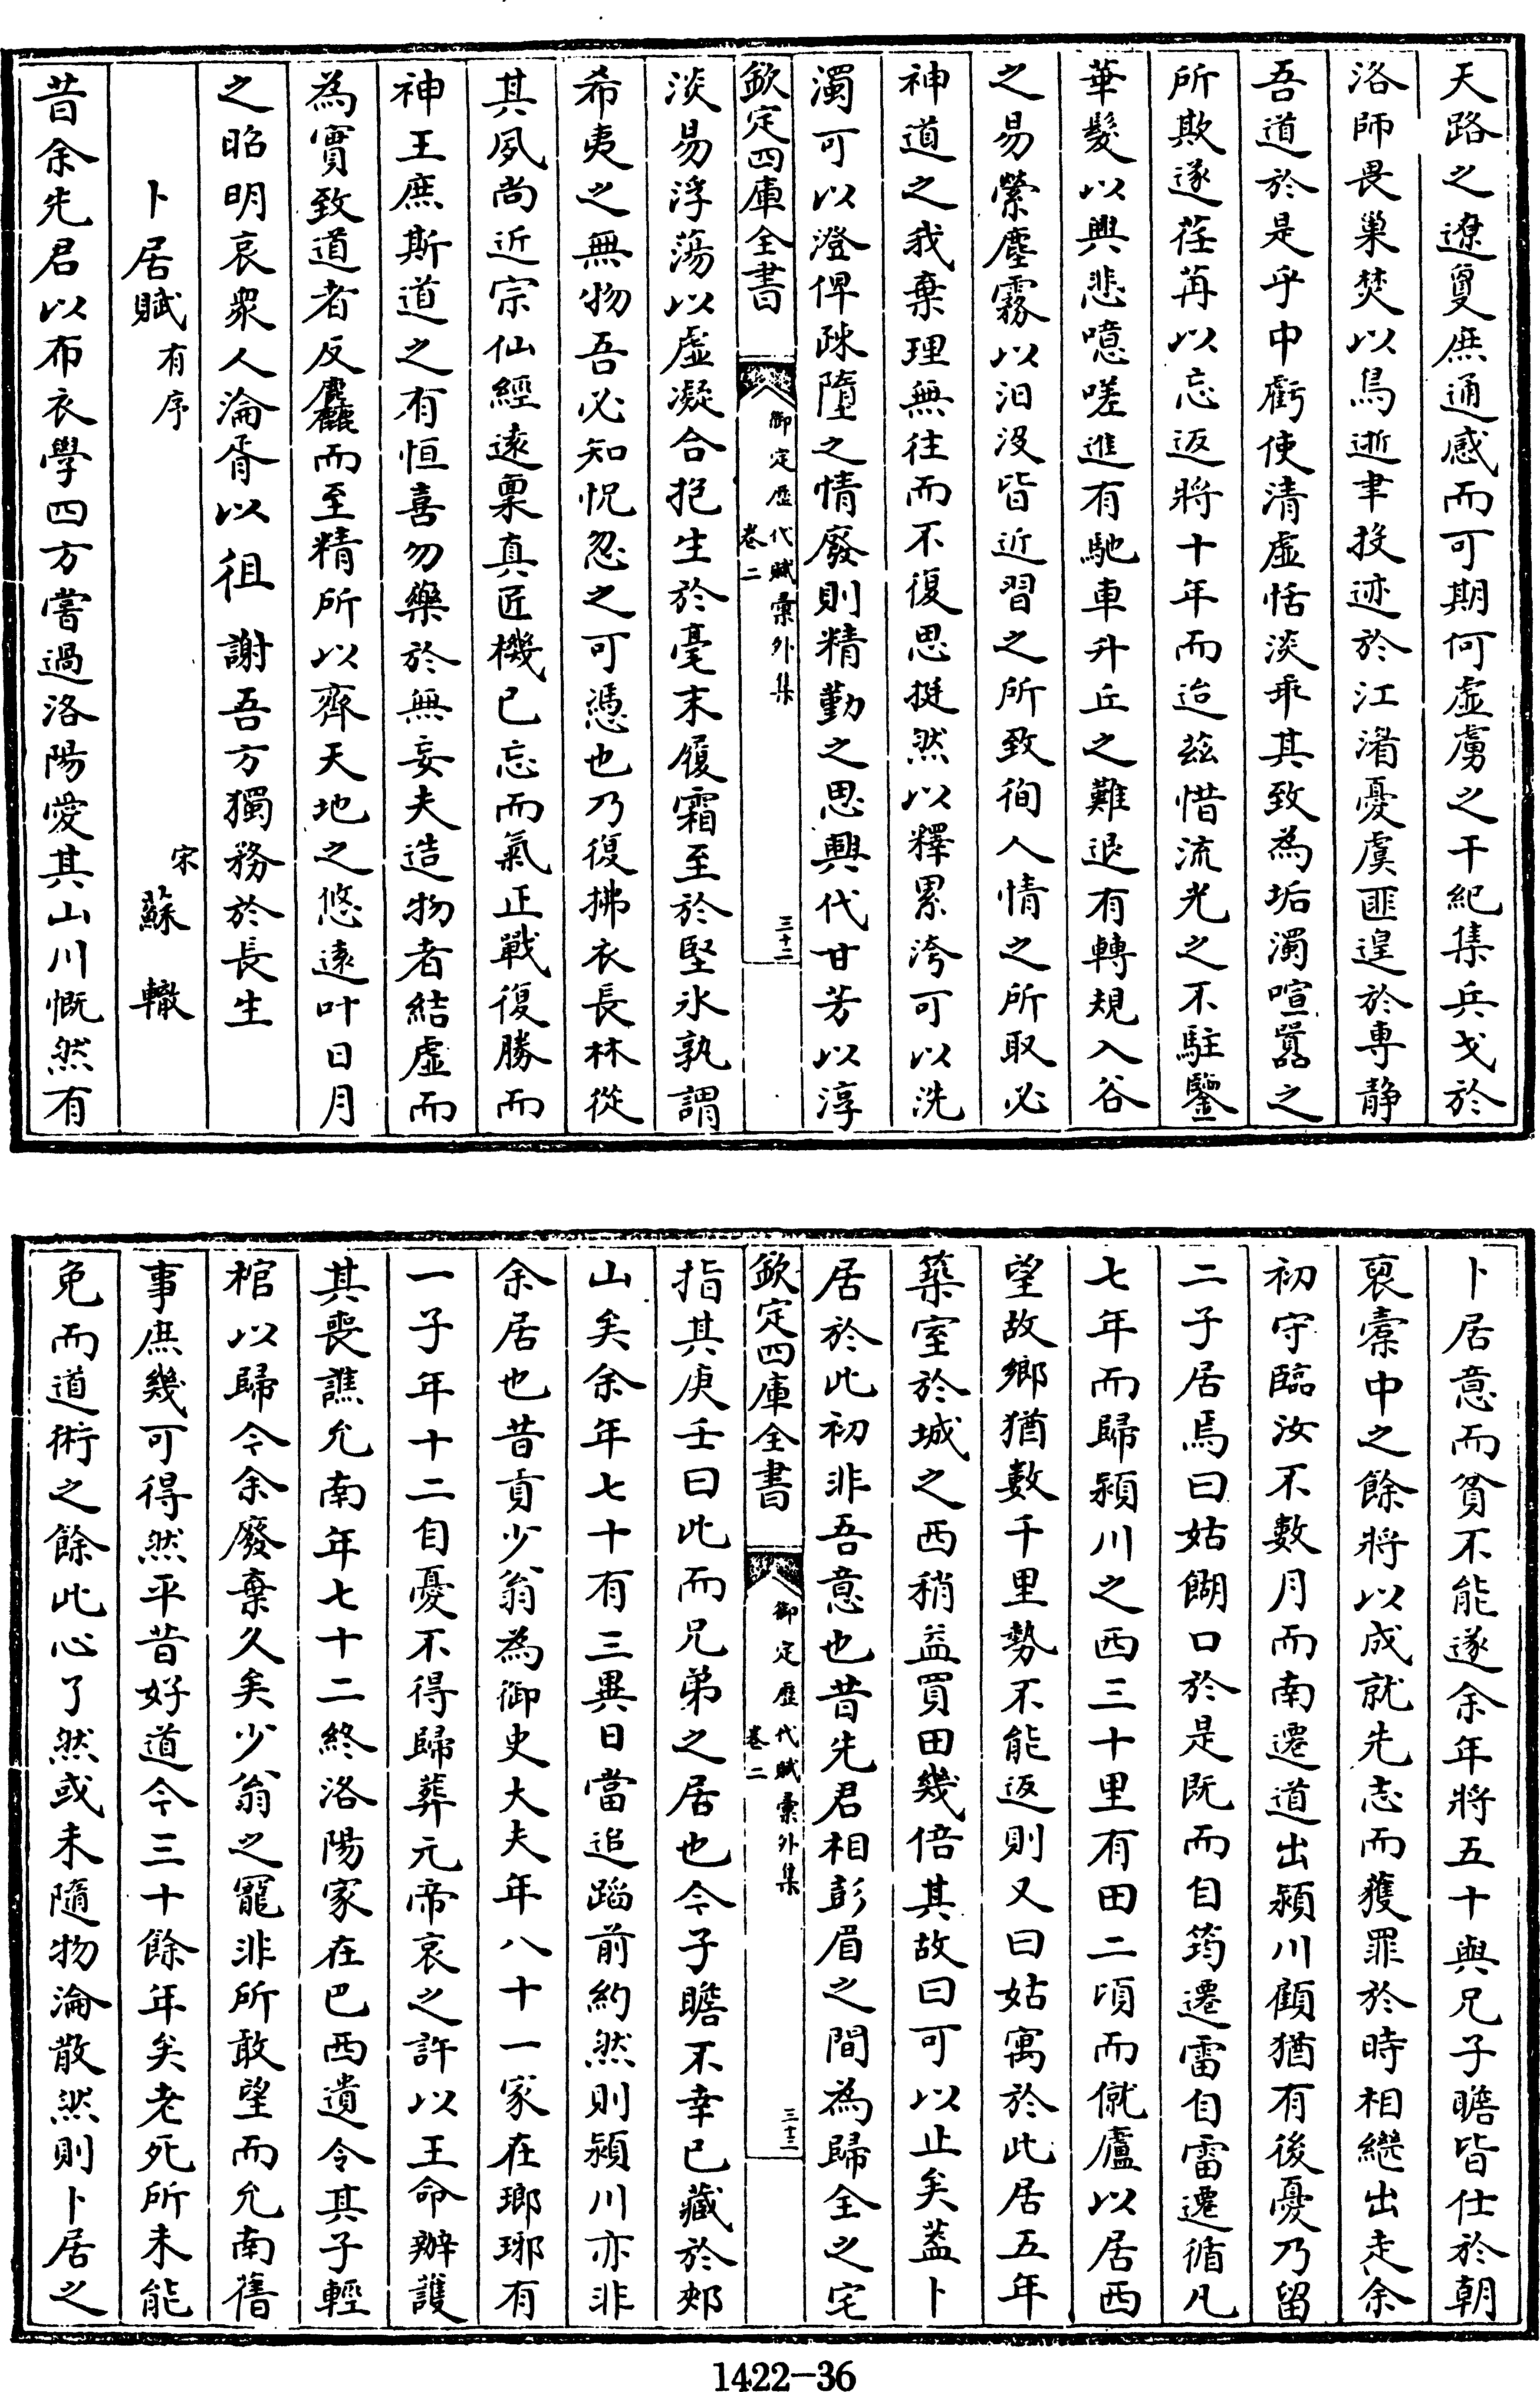 天路之遼夐庶通感而可期何虛虜之干紀集兵戈於
洛師畏巢焚以鳥逝聿投迹於江湑憂虞匪遑於專静
吾道於是乎中虧使清虛恬淡乖其致為垢濁喧囂之
所欺遂荏苒以忘返將十年而迨兹惜流光之不駐鑒
華髮以興悲噫嗟進有馳車升丘之難退有轉規入谷
之易縈塵霧以汨没皆近習之所致徇人情之所取必
神道之我棄理無往而不復思挺然以釋累洿可以洗
濁可以澄俾疎隳之情廢則精勤之思興代甘芳以淳
欽定四庫全書
御定歷代賦彙外集
卷二
三十二
淡易浮蕩以虛凝合抱生於毫末履霜至於堅氷孰謂
希夷之無物吾必知怳忽之可憑也乃復拂衣長林從
其夙尚近宗仙經遠稟真匠機已忘而氣正戰復勝而
神王庶斯道之有恒喜勿藥於無妄夫造物者結虛而
為實致道者反麤而至精所以齊天地之悠遠叶日月
之昭明哀衆人淪胥以徂謝吾方獨務於長生
卜居賦有序
宋蘇轍
昔余先君以布衣學四方嘗過洛陽愛其山川慨然有
卜居意而貧不能遂余年將五十與兄子瞻皆仕於朝
裒橐中之餘將以成就先志而獲罪於時相繼出走余
初守臨汝不數月而南遷道出潁川顧猶有後憂乃留
二子居焉曰姑餬口於是既而自筠遷雷自雷遷循凡
七年而歸潁川之西三十里有田二頃而僦廬以居西
望故鄉猶數千里勢不能返則又曰姑寓於此居五年
築室於城之西稍益買田幾倍其故曰可以止矣蓋卜
居於此初非吾意也昔先君相彭眉之間為歸全之宅
欽定四庫全書
御定歷代賦彙外集
卷二
三十三
指其庚壬曰此而兄弟之居也今子瞻不幸已藏於郟
山矣余年七十有三異日當追蹈前約然則潁川亦非
余居也昔貢少翁為御史大夫年八十一家在瑯琊有
一子年十二自憂不得歸葬元帝哀之許以王命辦護
其喪譙允南年七十二終洛陽家在巴西遺令其子輕
棺以歸今余廢棄久矣少翁之寵非所敢望而允南舊
事庶幾可得然平昔好道今三十餘年矣老死所未能
免而道術之餘此心了然或未隨物淪散然則卜居之
1422-36